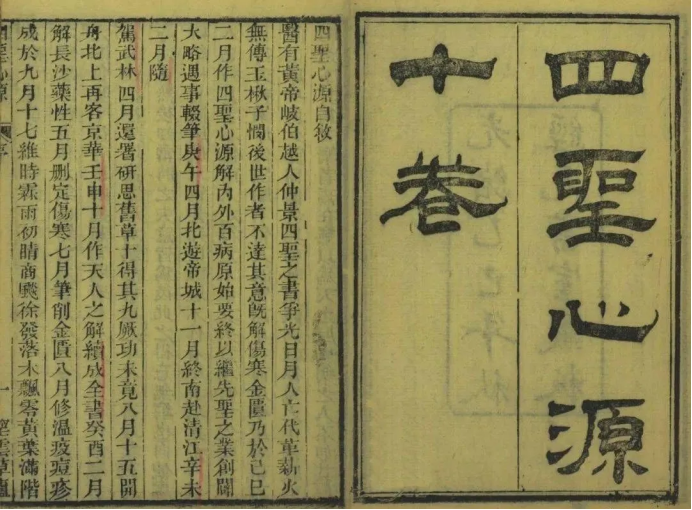 四聖心源
十卷
四聖心源自敘
醫有黃帝岐伯越人仲景四聖之書爭光日月人亡代革薪火
無傳玉楸子憫後世作者不達其意既解傷寒金匱乃於己巳
二月作四聖心源解內外百病原始要終以繼先聖之業創闢
大略遇事輟筆庚午四月北遊帝城十一月終南赴清江辛未
二月隨
駕武林四月還署研思舊草十得其九厥功未竟八月十五開
舟北上再客京華壬申十月作天人之解續成全書癸酉二月
解長沙藥性五月刪定傷寒七月筆削金匱八月修溫疫痘疹
成於九月十七維時霖雨初晴商飈徐發落木飄零黃葉滿階
四聖心源
序
一